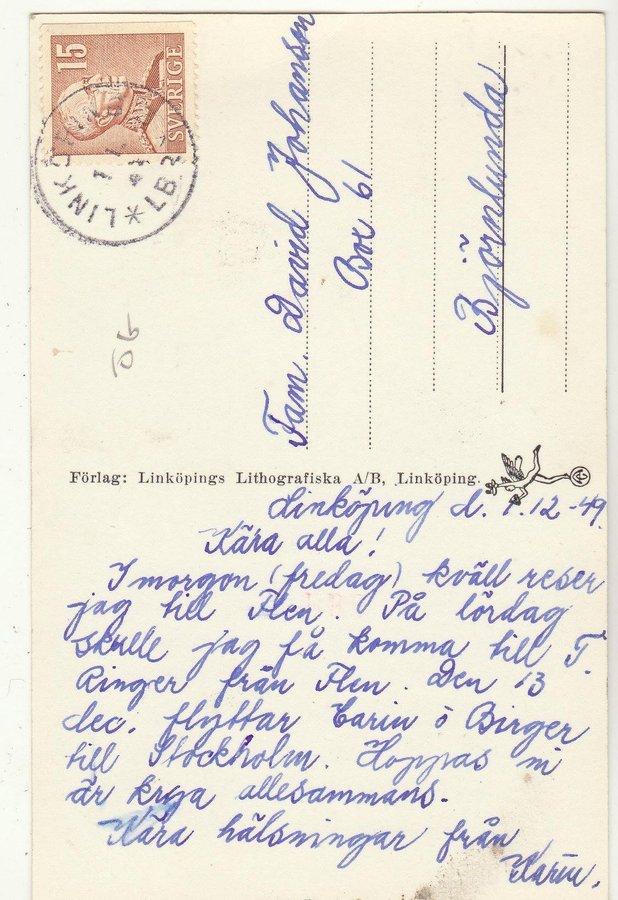 15
SVERIGE
LINKÖPING
LBR
Fam. David Johanson
Box 61
Björnlunda
Förlag: Linköpings Lithografiska A/B, Linköping.
Linköping d. 1.12-49.
Kära alla!
I morgon (fredag) kväll reser
jag till Flen. På lördag
skulle jag få komma till T.
Ringer från Flen. Den 13
dec. flyttar Carin o Birger
till Stockholm. Hoppas ni
är krya allesammans.
Kära hälsningar från
Karin.